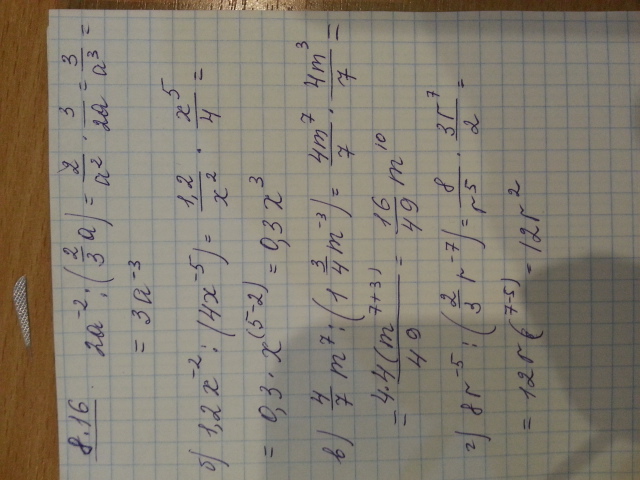 8.16. 2a⁻² : (2/3 a) = 2/a² · 3/2a = 3/a³ =
= 3a⁻³
б) 1,2x⁻² : (4x⁻⁵) = 1,2/x² · x⁵/4 =
= 0,3 · x⁽⁵⁻²⁾ = 0,3x³
в) 4/7 m⁷ : (1 3/4 m⁻³) = 4m⁷/7 · 4m³/7 =
= 4·4(m⁷⁺³)/49 = 16/49 m¹⁰
г) 8r⁻⁵ : (2/3 r⁻⁷) = 8/r⁵ · 3r⁷/2 =
= 12r(⁷⁻⁵) = 12r²